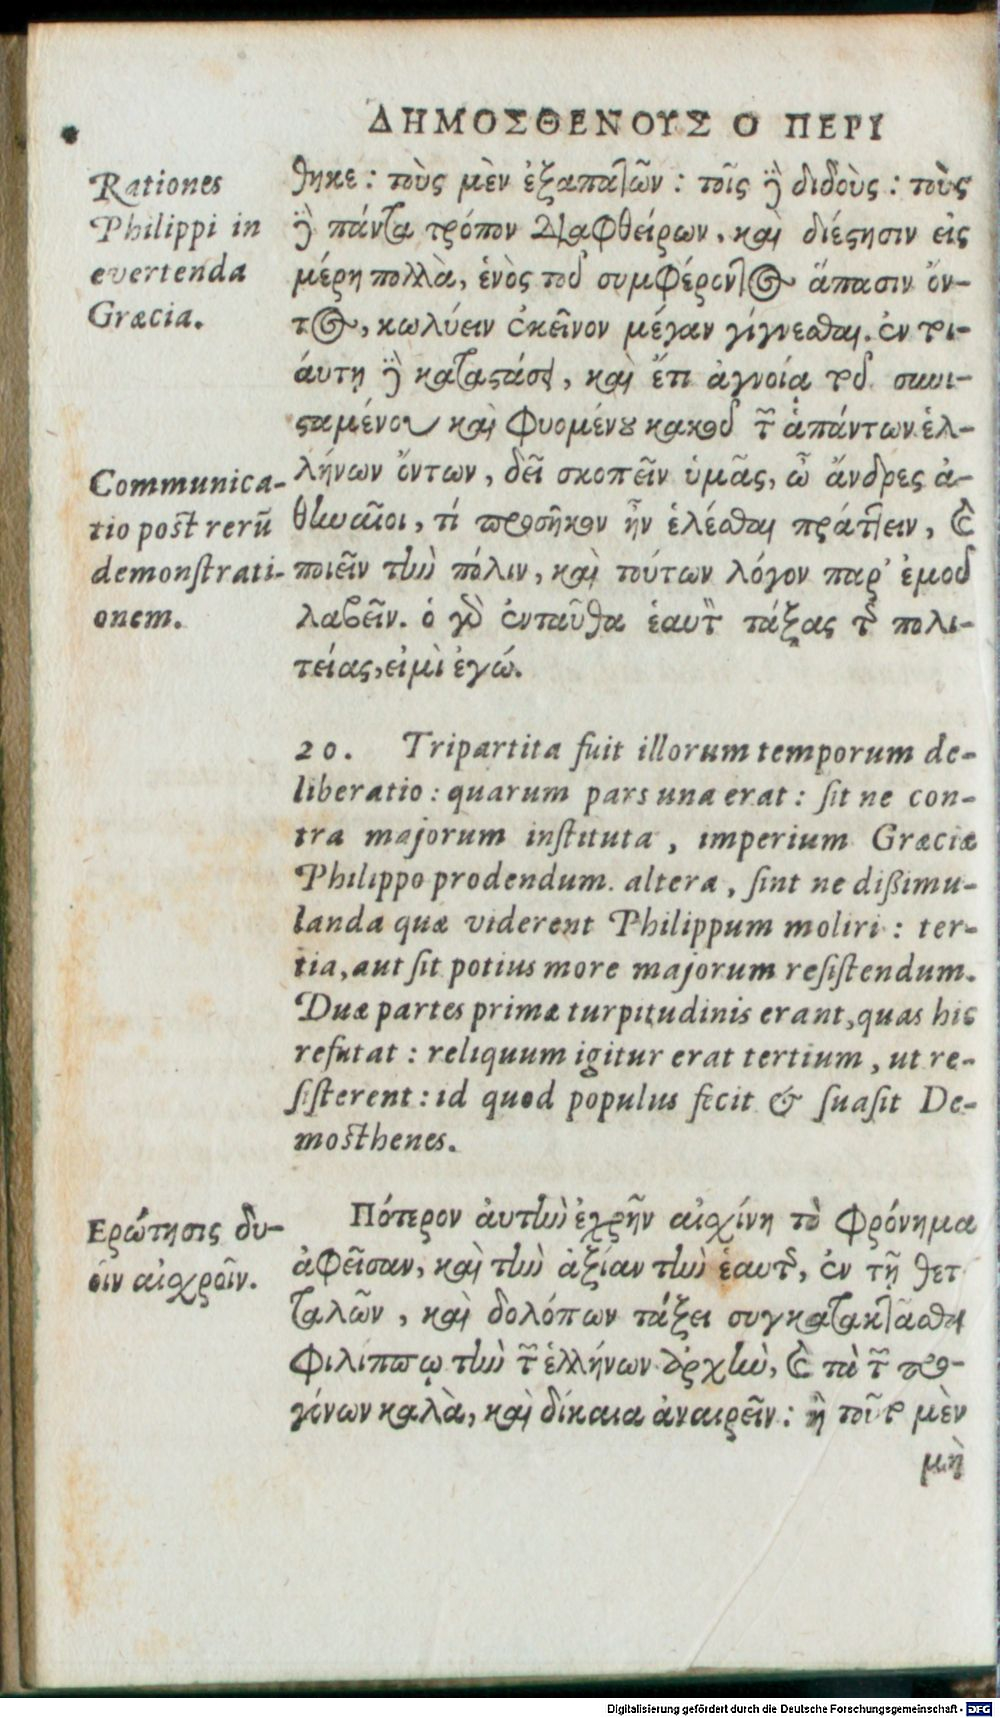 ΔΗΜΟΣΘΕΝΟΥΣ Ο ΠΕΡΙ
Rationes
Philippi in
evertenda
Græcia.
θηκε: τοὺς μὲν ἐξαπατῶν: τοῖς δὲ διδοὺς: τοὺς
δὲ πάντα τρόπον διαφθείρων, καὶ διέστησιν εἰς
μέρη πολλὰ, ἑνὸς τοῦ συμφέροντος ἅπασιν ὄν-
τος, κωλύειν ἐκεῖνον μέγαν γίγνεσθαι. ἐν τοι-
αύτῃ δὲ καταστάσει, καὶ ἔτι ἀγνοίᾳ τοῦ συνι-
σταμένου καὶ φυομένου κακοῦ τῶν ἁπάντων ἑλ-
Communica-
tio post rerū
demonstrati-
onem.
λήνων ὄντων, δεῖ σκοπεῖν ὑμᾶς, ὦ ἄνδρες ἀ-
θηναῖοι, τί προσῆκον ἦν ἑλέσθαι πράττειν, καὶ
ποιεῖν τὴν πόλιν, καὶ τούτων λόγον παρ' ἐμοῦ
λαβεῖν. ὁ γὰρ ἐνταῦθα ἑαυτὸν τάξας τῆς πολι-
τείας, εἰμὶ ἐγώ.
20. Tripartita fuit illorum temporum de-
liberatio: quarum pars una erat: sit ne con-
tra majorum instituta, imperium Græciæ
Philippo prodendum. altera, sint ne dißimu-
landa quæ viderent Philippum moliri: ter-
tia, aut sit potius more majorum resistendum.
Duæ partes primæ turpitudinis erant, quas hic
refutat: reliquum igitur erat tertium, ut re-
sisterent: id quod populus fecit & suasit De-
mosthenes.
Ερώτησις δυ-
οῖν αἰσχροῖν.
Πότερον ἀυτὴν ἐχρῆν αἰσχίνη τὸ φρόνημα
ἀφεῖσαν, καὶ τὴν ἀξίαν τὴν ἑαυτῆς, ἐν τῇ θετ
ταλῶν, καὶ δολόπων τάξει συγκατακτᾶσθαι
φιλίππῳ τὴν τῶν ἑλλήνων ἀρχὴν, καὶ τὰ τῶν προ-
γόνων καλὰ, καὶ δίκαια ἀναιρεῖν: ἢ τοῦτο μὲν
μὴ
Digitalisierung gefördert durch die Deutsche Forschungsgemeinschaft - DFG